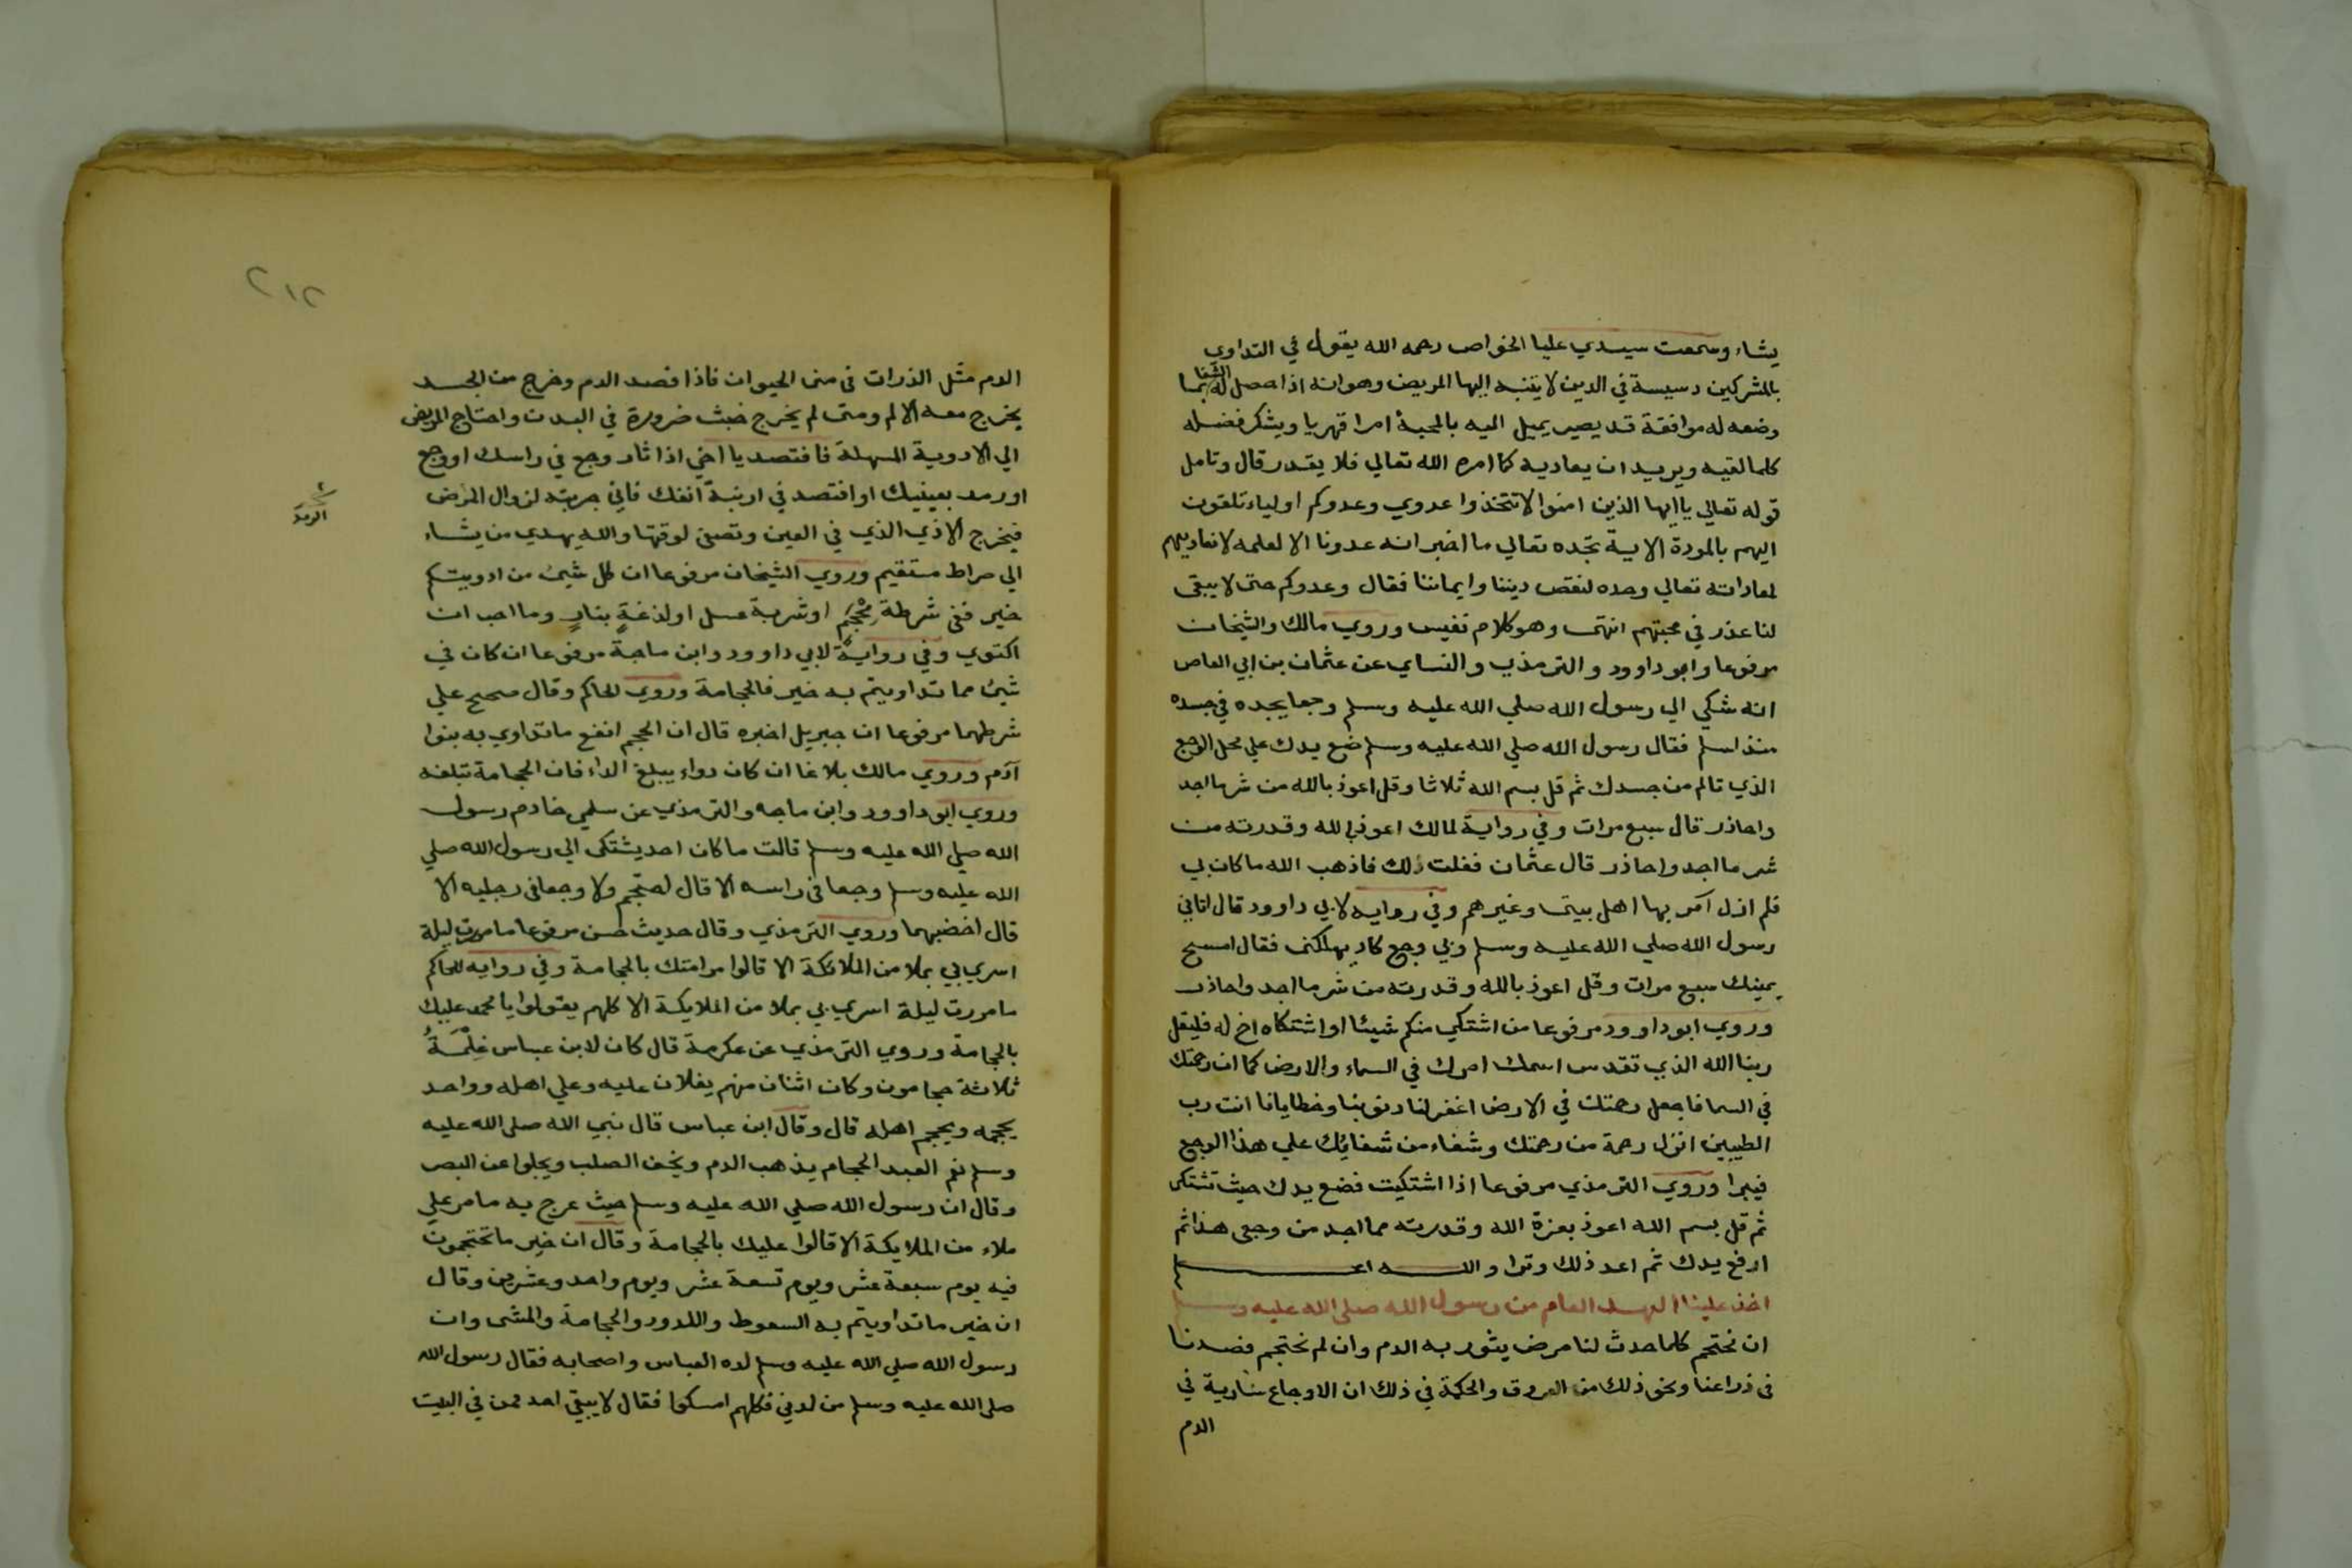 يشاء وسمعت سيدي عليا الخواص رحمه الله يقول في التداوي
بالمشركين دسيسة في الدين لا يتنبه اليها المريض وهو انه اذا حصل له الشفا بما
وضعه له موافقة قد يصير يميل اليه بالمحبة امرا قهريا ويشكر فضله
كلما لقيه ويريد ان يعاديه كما امره الله تعالي فلا يقدر قال وتامل
قوله تعالي يا ايها الذين امنوا لا تتخذوا عدوي وعدوكم اولياء تلقون
اليهم بالمودة الاية تجده تعالي ما اخبر انه عدونا الا لعلمه لا نعاديهم
لمعاداته تعالي وحده لنقص ديننا وايماننا فقال وعدوكم حتى لا يبقى
لنا عذر في محبتهم انتهى وهو كلام نفيس وروي مالك والشيخان
مرفوعا وابو داوود والترمذي والنساي عن عثمان بن ابي العاص
انه شكي الي رسول الله صلي الله عليه وسلم وجعا يجده في جسده
منذ اسلم فقال رسول الله صلي الله عليه وسلم ضع يدك علي محل الوجع
الذي تالم من جسدك ثم قل بسم الله ثلاثا وقل اعوذ بالله من شر ما اجد
واحاذر قال سبع مرات وفي رواية لمالك اعوذ بالله وقدرته من
شر ما اجد واحاذر قال عثمان ففلت ذلك فاذهب الله ما كان بي
فلم ازل آمر بها اهل بيتى وغيرهم وفي رواية لابي داوود قال اتاني
رسول الله صلي الله عليه وسلم وبي وجع كاد يهلكنى فقال امسح
بيمينك سبع مرات وقل اعوذ بالله وقدرته من شر ما اجد واحاذر
وروي ابو داوود مرفوعا من اشتكي منكم شيئا او اشتكاه اخ له فليقل
ربنا الله الذي تقدس اسمك امرك في السماء والارض كما ان رحمتك
في السما فاجعل رحمتك في الارض اغفر لنا ذنوبنا وخطايانا انت رب
الطيبين انزل رحمة من رحمتك وشفاء من شفائك علي هذا الوجع
فيبرا وروي الترمذي مرفوعا اذا اشتكيت فضع يدك حيث تشتكى
ثم قل بسم الله اعوذ بعزة الله وقدرته مما اجد من وجعى هذا ثم
ارفع يدك ثم اعد ذلك وترا والله اعلم
اخذ علينا العهد العام من رسول الله صلى الله عليه وسلم
ان نحتجم كلما حدث لنا مرض يثور به الدم وان لم نحتجم فصدنا
فى ذراعنا ونحو ذلك من العروق والحكمة في ذلك ان الاوجاع سارية في
الدم
٢١٢
الدم مثل الذرات فى منى الحيوان فاذا فصد الدم وخرج من الجسد
يخرج معه الالم ومتى لم يخرج خبث ضرورة في البدن واحتاج المريض
الي الادوية المسهلة فافتصد يا اخي اذا ثار وجع في راسك او وجع
او رمد بعينيك او افتصد في ارنبة انفك فاني جربته لزوال المرض
فيخرج الاذي الذي في العين وتصفى لوقتها والله يهدي من يشاء
الي صراط مستقيم وروي الشيخان مرفوعا ان كل شيئ من ادويتكم
خير ففى شرطة محجم او شربة عسل او لذغة بنار وما احب ان
اكتوي وفي رواية لابي داوود وابن ماجة مرفوعا ان كان في
شيئ مما تداويتم به خير فالحجامة وروي الحاكم وقال صحيح علي
شرطهما مرفوعا ان جبريل اخبره قال ان الحجم انفع ما تداوي به بنوا
آدم وروي مالك بلاغا ان كان دواء يبلغ الداء فان الحجامة تبلغه
وروي ابو داوود وابن ماجه والترمذي عن سلمي خادم رسول
الله صلي الله عليه وسلم قالت ما كان احد يشتكى الي رسول الله صلي
الله عليه وسلم وجعا فى راسه الا قال احتجم ولا وجعا فى رجليه الا
قال اخضبهما وروي الترمذي وقال حديث حسن مرفوعا ما مررت ليلة
اسري بي بملا من الملائكة الا قالوا مر امتك بالحجامة وفي رواية للحاكم
ما مررت ليلة اسري بي بملا من الملايكة الا كلهم يقولوا يا محمد عليك
بالحجامة وروي الترمذي عن عكرمة قال كان لابن عباس غلمة
ثلاثة حجامون وكان اثنان منهم يغلان عليه وعلي اهله وواحد
يحجمه ويحجم اهله قال وقال ابن عباس قال نبي الله صلي الله عليه
وسلم نعم العبد الحجام يذهب الدم ويخف الصلب ويجلوا عن البصر
وقال ان رسول الله صلي الله عليه وسلم حيث عرج به ما مر علي
ملاء من الملايكة الا قالوا عليك بالحجامة وقال ان خير ما تحتجمون
فيه يوم سبعة عشر ويوم تسعة عشر ويوم واحد وعشرين وقال
ان خير ما تداويتم به السعوط واللدود والحجامة والمشى وان
رسول الله صلي الله عليه وسلم لده العباس واصحابه فقال رسول الله
صلى الله عليه وسلم من لدني فكلهم امسكوا فقال لا يبقي احد ممن في البيت
الرمد